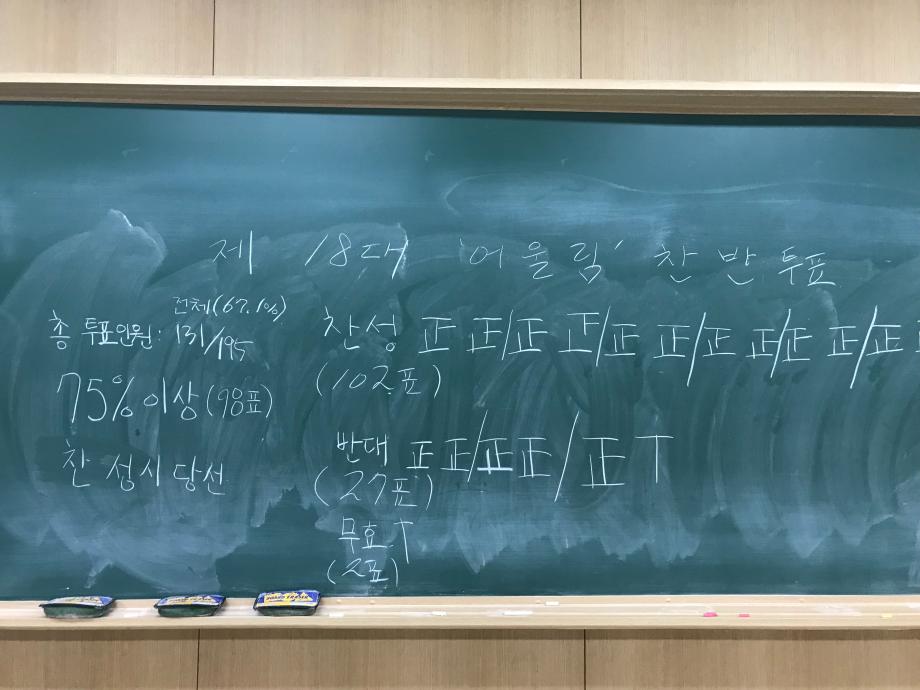 제 18대 '어울림' 찬반투표
전체(67.1%)
총 투표인원: 131/195
75%이상(98표)
찬성시 당선
찬성 正 正/正 正/正 正/正 正/正 正/正
(102표)
반대 正 正/正 正/正 丅
(27표)
무효 丅
(2표)